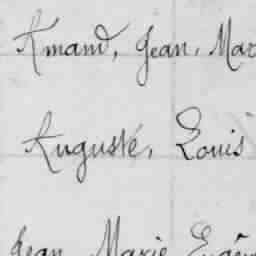 Amand, Jean, Mar
Augusté, Louis
Jean Marie Eugèn